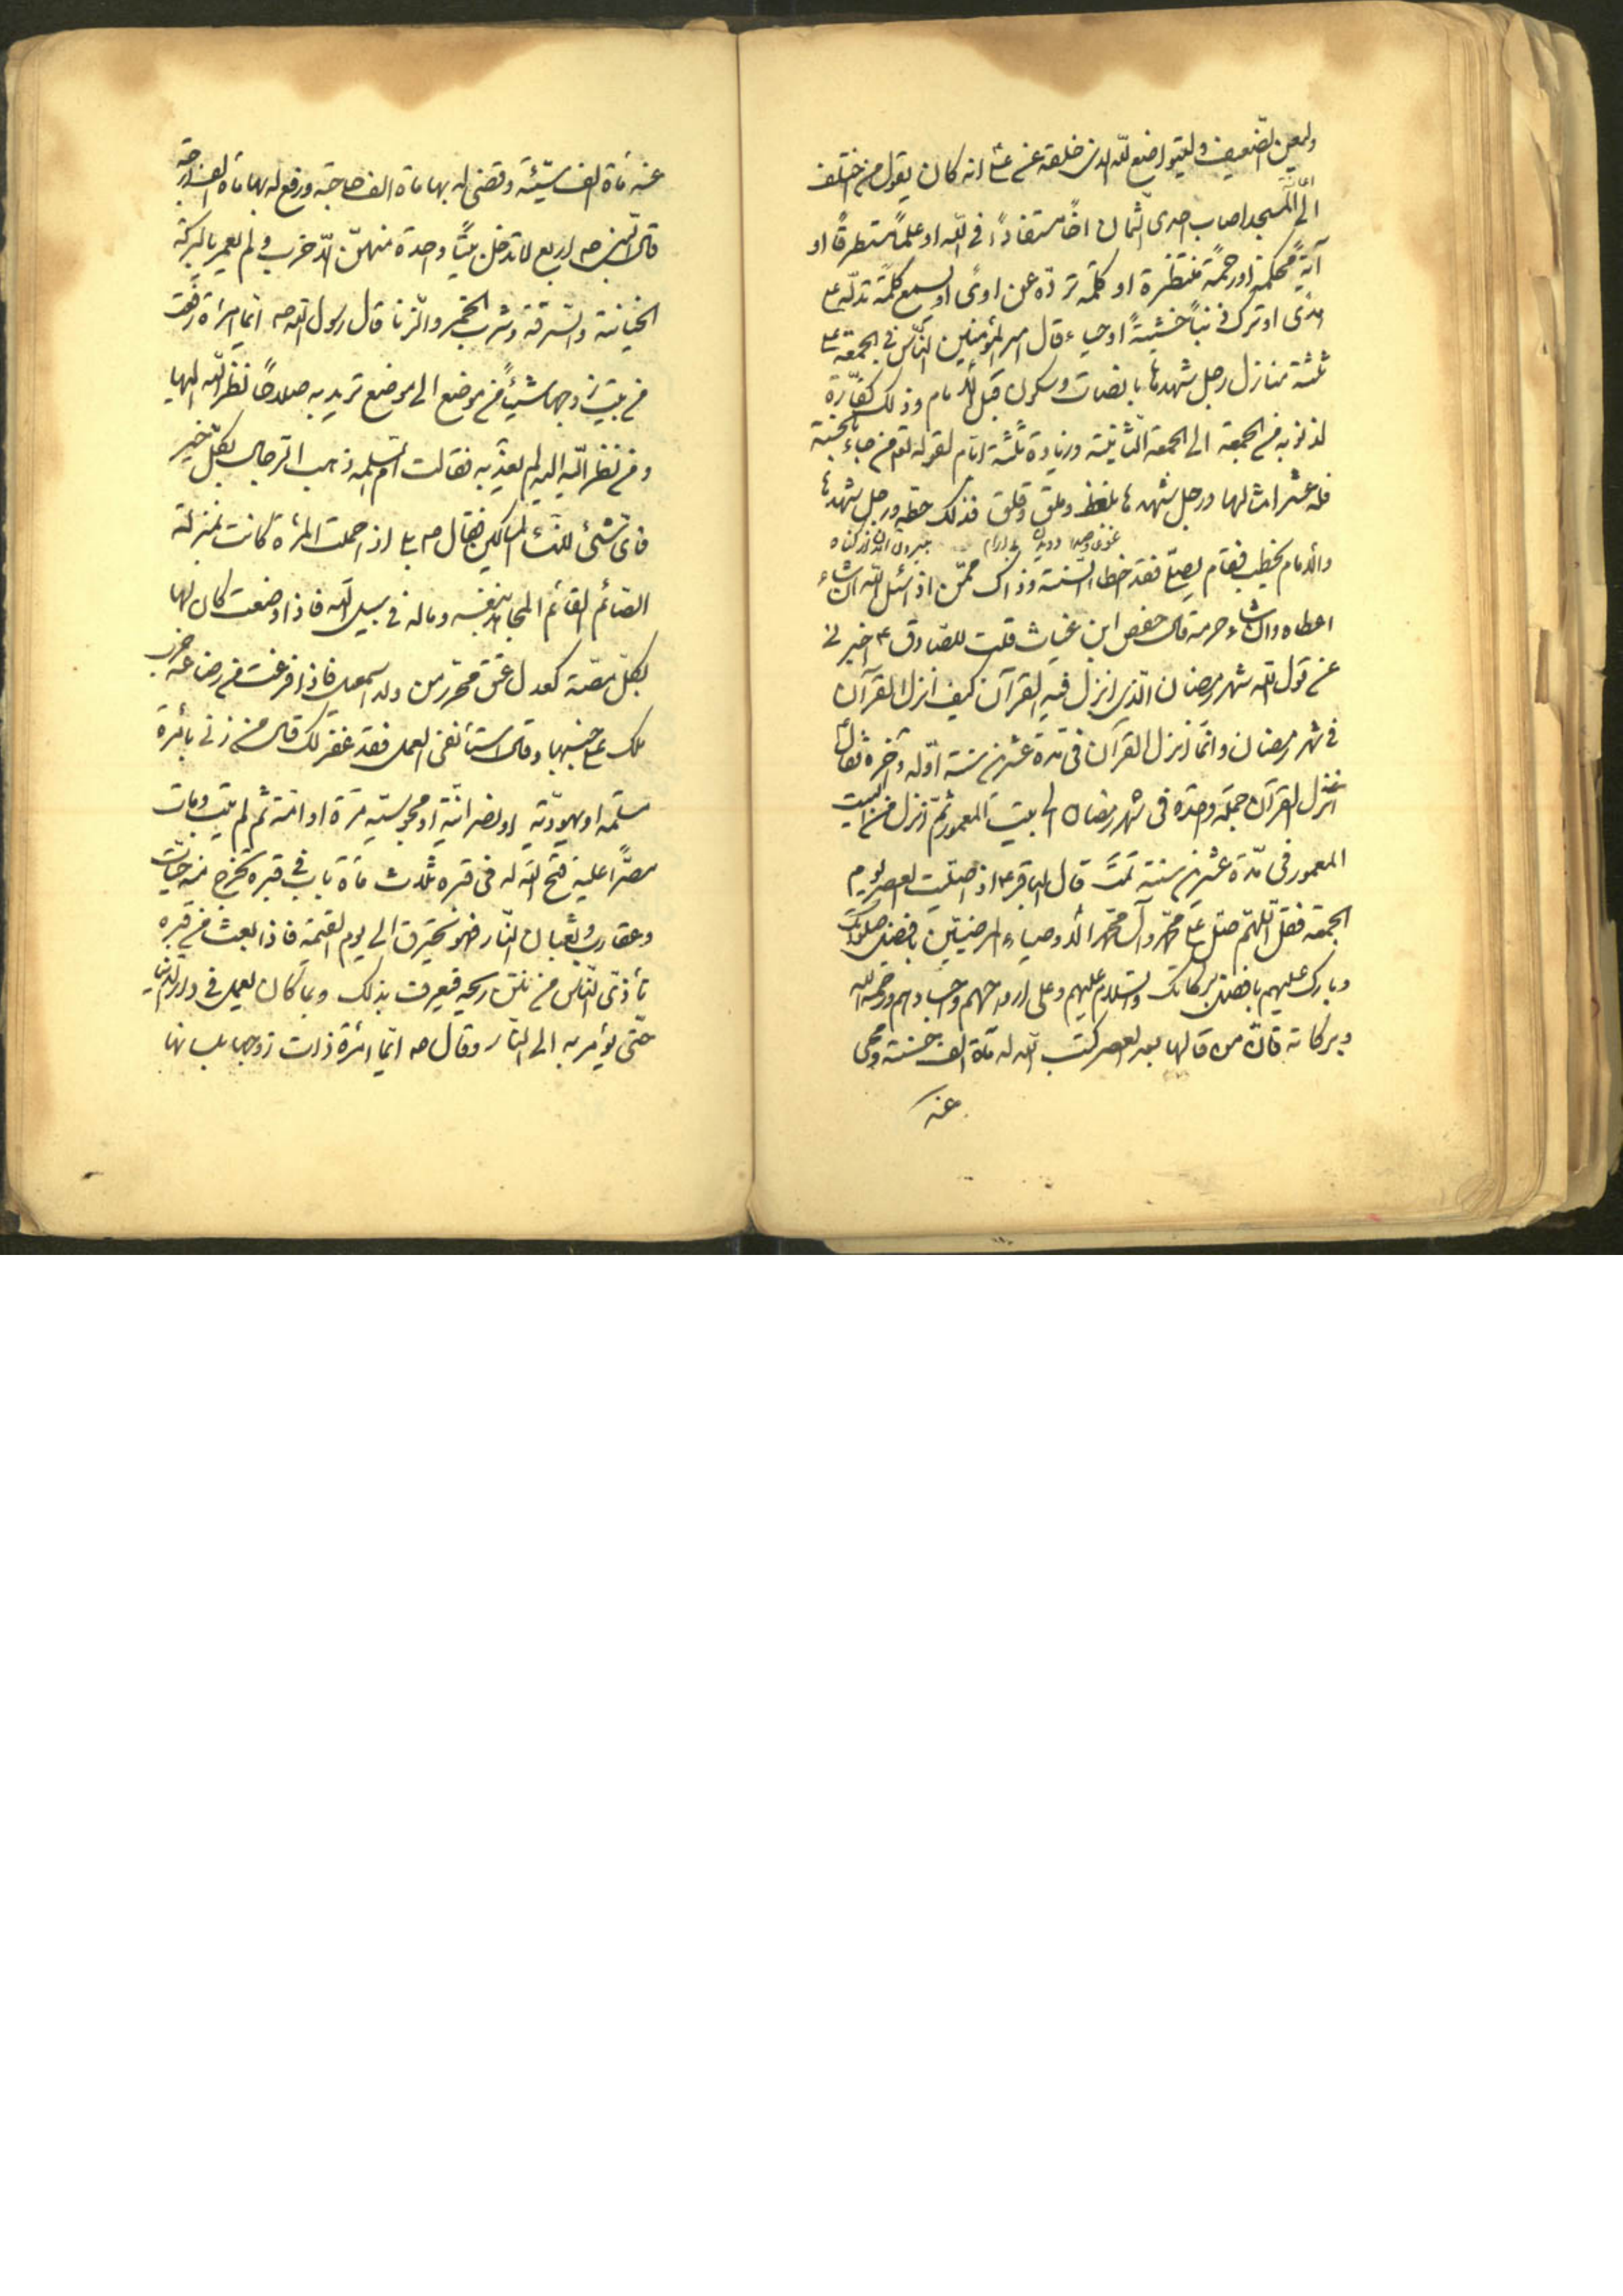 وليعين الضعيف وليتواضع لله الذى خلقه عن على ع انه كان يقول من اختلف
الى المسجد اصاب احدى الثمان اخًا مستفادًا فى الله او علمًا مستطرفًا او
آيةً محكمة او رحمةً منتظرة او كلمة تردّه عن ردًى او يسمع كلمةً تدلّه على
هدًى او ترك ذنبًا خشيةً او حياء قال امير المؤمنين الناس فى الجمعة على
ثلثة منازل رجل شهدها بانصات وسكون قبل الامام وذلك كفّارة
لذنوبه من الجمعة الى الجمعة الثانية وزيادة ثلثة ايّام لقوله تع من جاء بالحسنة
فله عشر امثالها ورجل شهدها بلغط وملق وقلق فذلك حظّه ورجل شهدها
والامام يخطب فقام يصلّى فقد اخطا السنة وذاك ممّن اذا سئل الله ان شاء
اعطاه وان شاء حرمه قال حفص ابن غياث قلت للصّادق ع اخبرنى
عن قول الله شهر رمضان الّذى انزل فيه القرآن كيف انزل القرآن
فى شهر رمضان وانّما انزل القرآن فى مدة عشرين سنة اوّله وآخره فقال ع
انزل القرآن جملة واحدة فى شهر رمضان الى بيت المعمور ثمّ انزل من البيت
المعمور فى مدّة عشرين سنة تمّت قال الباقر ع اذا صلّيت العصر يوم
الجمعة فقل اللّهم صلّ على محمّد وآل محمّد الاوصياء المرضيّين بافضل صلواتك
وبارك عليهم بافضل بركاتك والسّلام عليهم وعلى ارواحهم واجسادهم ورحمة الله
وبركاته فانّ من قالها بعد العصر كتب الله له مأة الف حسنة ومحى
عنه
عنه مأة الف سيّئة وقضى له بها مأة الف حاجة ورفع له بها مأة الف درجة
قال النّبى ص اربع لا تدخل بيتًا واحدة منهنّ الّا خرب ولم يعمر بالبركة
الخيانة والسّرقة وشرب الخمر والزّنا قال رسول الله ص ايّما امراة رفعت
من بيت زوجها شيئًا من موضع الى موضع تريد به صلاحًا نظر الله اليها
ومن نظر الله اليه لم يعذّبه فقالت امّ سلمه ذهب الرّجال بكلّ خير
فاىّ شىء للنّساء المساكين فقال ص بلى اذا حملت المرأة كانت بمنزلة
الصّائم القائم المجاهد بنفسه وماله فى سبيل الله فاذا وضعت كان لها
بكلّ مصّة كعدل عتق محرّر من ولد اسمعيل فاذا فرغت من رضاعه ضرب
ملك على جنبها وقال استأنفى العمل فقد غفر لك قال من زنى بامرأة
مسلمه او يهوديّة او نصرانيّة او مجوسيّه حرّة او امة ثم لم يتب ومات
مصرًّا عليه فتح الله له فى قبره ثلاث مأة باب فى قبره تخرج منه حيّات
وعقارب وثعبان النّار فهو يحترق الى يوم القيمة فاذا بعث من قبره
تأذّى النّاس من نتن ريحه فيعرف بذلك وبما كان يعمل فى دار الدنيا
حتّى يؤمر به الى النّار وقال ص ايّما امرأة ذات زوجها بلسانها